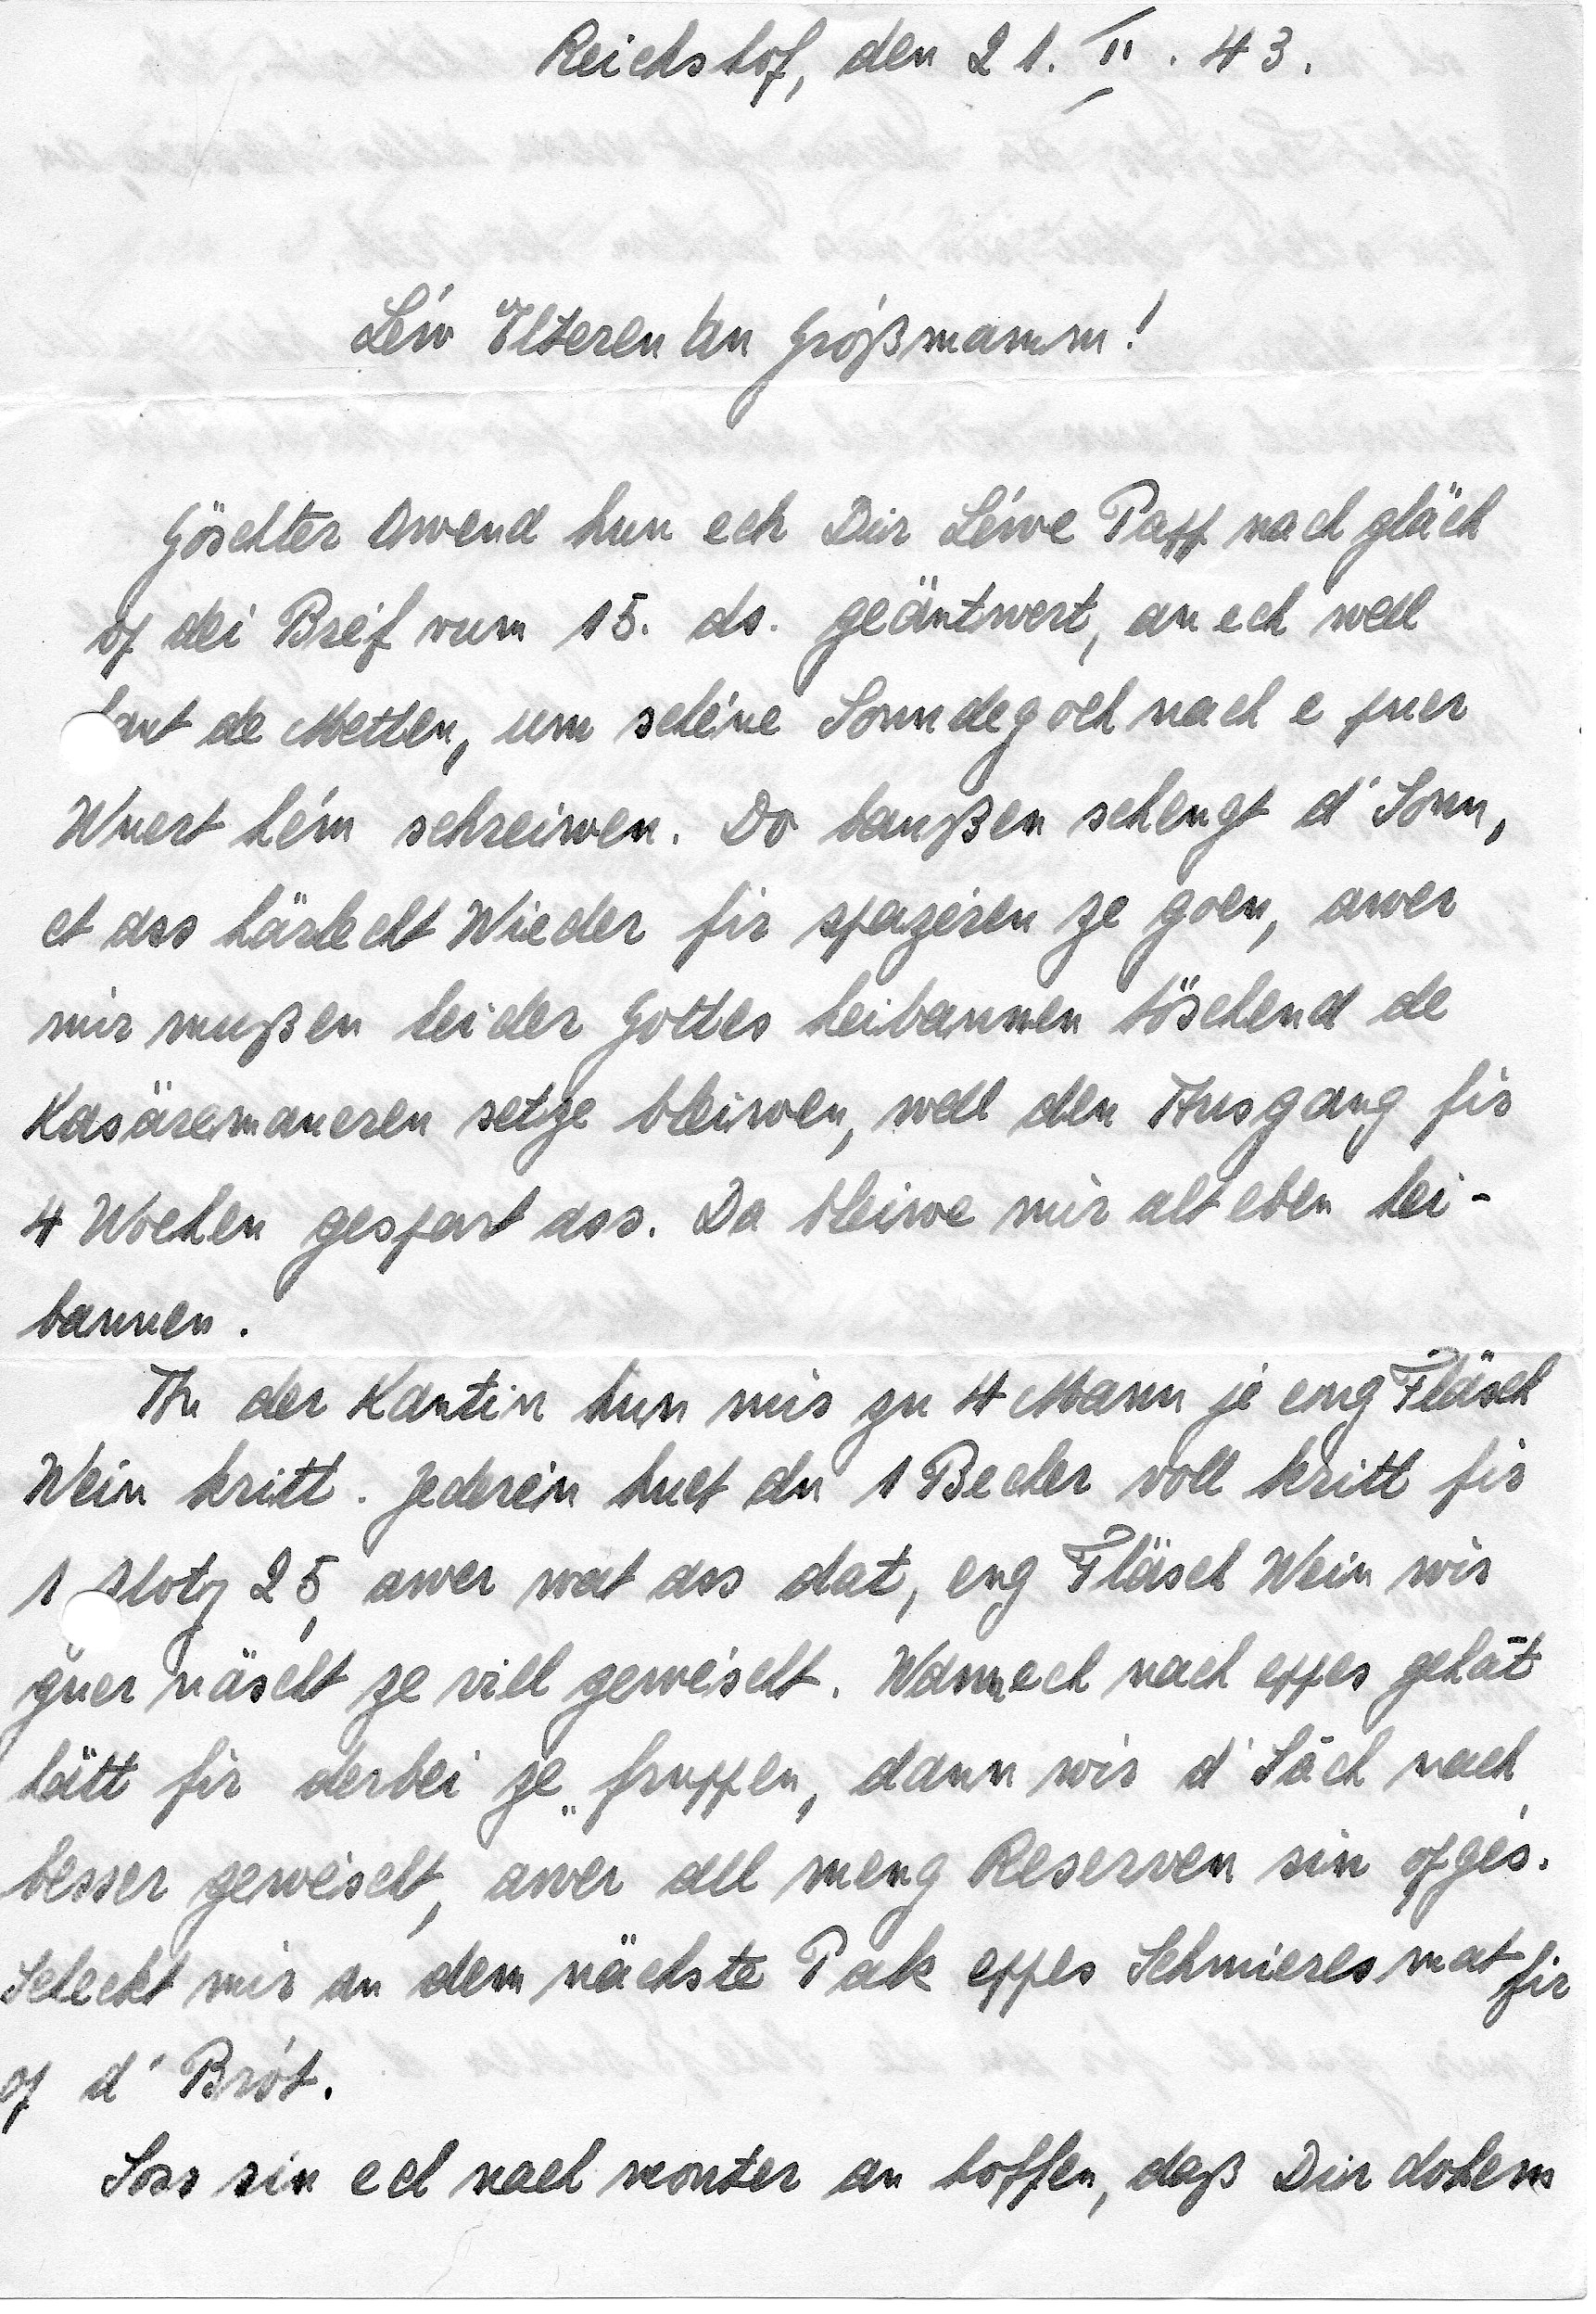 Reichshof, den 21. II. 43.
Léiw Elteren an Gróßmamm!
Göschter Owend hun ech Dir Léiwe Papp nach gläch
op dei Bréif vum 15. ds. geäntwert, an ech well
haut de Metten, um schéine Sonndegoch nach e puer
Wuert hém schreiwen. Do baußen schengt d'Sonn,
et ass härlecht Wieder fir spazéiren ze goen, awer
mir mußen leider Gottes heibannen töschend de
Kasäremaueren setze bleiwen, well den Ausgang fir
4 Wochen gespart ass. Da bleiwe mir alt eben hei-
bannen.
An der Kantin hun mir zu 4 Mann je eng Fläsch
Wein kritt. Jederén huet du 1 Becher voll kritt fir
1 Sloty 25, awer wat ass dat, eng Fläsch Wein wir
guer näscht ze vill gewéscht. Wann ech nach eppes gehat
hätt fir derbei ze „fruppen, dann wir d'Säch nach
besser gewéscht, awer all meng Reserven sin opgés.
Scheckt mir an dem nächste Pak eppes Schmieres mat fir
op d'Brót.
Soss sin ech nach monter an hoffen, daß Dir dohém